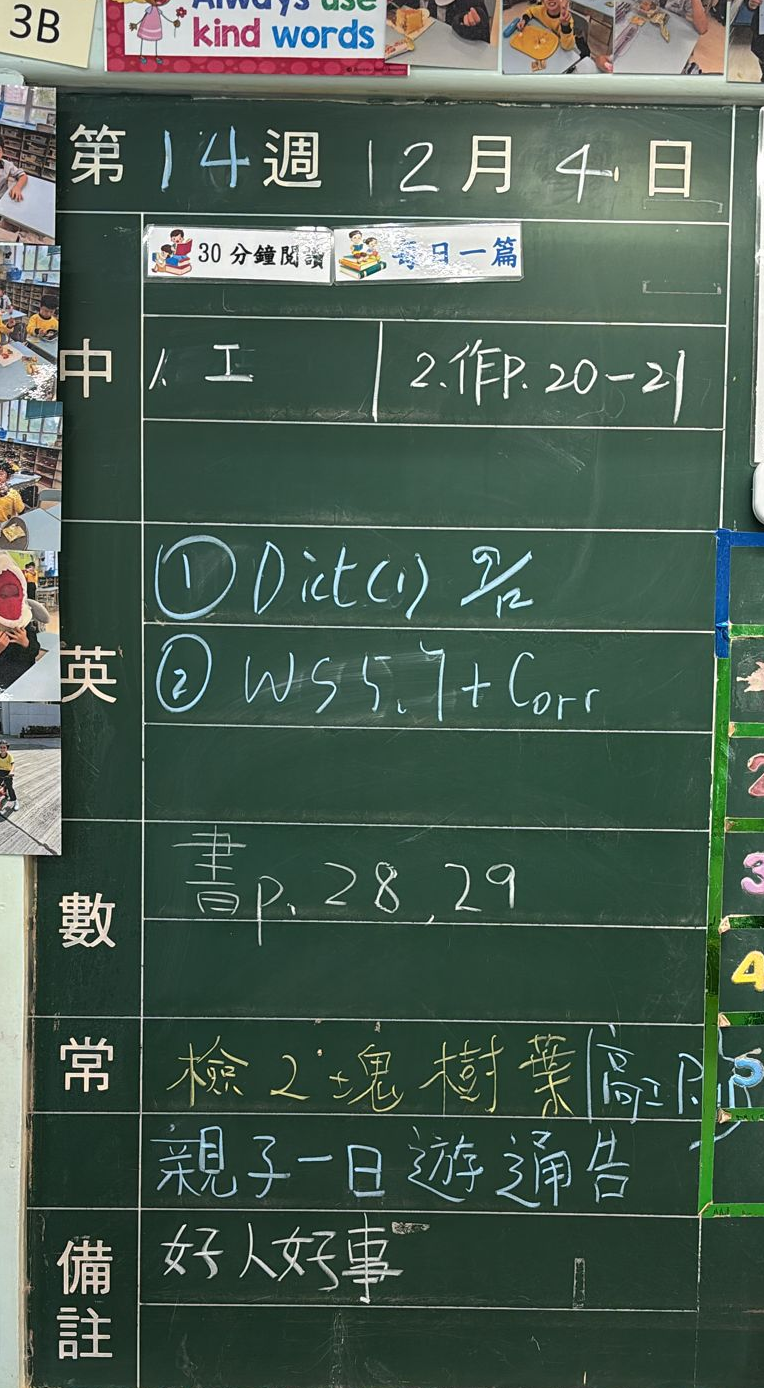 3B
Always use
kind words
第 14 週 12 月 4 日
30 分鐘閱讀 每日一篇
中
1. 工 2. 作 P. 20-21
① Dict(1) 9/12
英
② WS 5.7 + Corr
數
書 p. 28, 29
常
檢 2 塊樹葉
親子一日遊通告
備註
好人好事
2
3
4
5